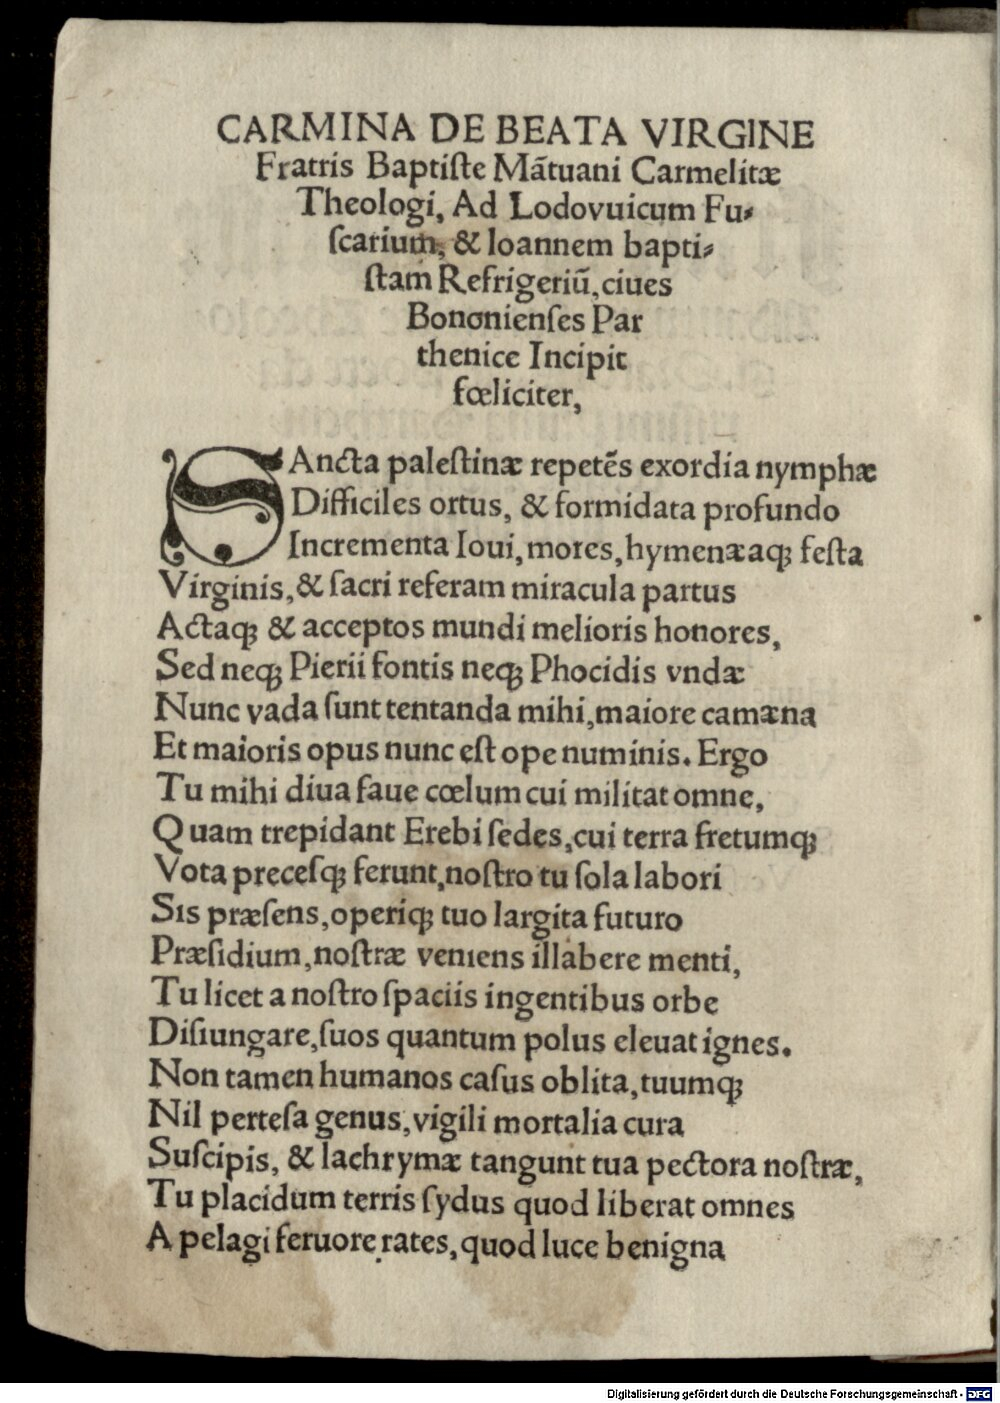 CARMINA DE BEATA VIRGINE
Fratris Baptiſte Mãtuani Carmelitæ
Theologi, Ad Lodovuicum Fu⸗
ſcarium, & Ioannem bapti⸗
ſtam Refrigeriũ, ciues
Bononienſes Par
thenice Incipit
fœliciter,
SAncta paleſtinæ repetẽs exordia nymphæ
Difficiles ortus, & formidata profundo
Incrementa Ioui, mores, hymenæaqꝫ feſta
Virginis, & ſacri referam miracula partus
Actaqꝫ & acceptos mundi melioris honores,
Sed neqꝫ Pierii fontis neqꝫ Phocidis vndæ
Nunc vada ſunt tentanda mihi, maiore camæna
Et maioris opus nunc eſt ope numinis. Ergo
Tu mihi diua faue cœlum cui militat omne,
Quam trepidant Erebi ſedes, cui terra fretumqꝫ
Vota preceſqꝫ ferunt, noſtro tu ſola labori
Sis præſens, operiqꝫ tuo largita futuro
Præſidium, noſtræ veniens illabere menti,
Tu licet a noſtro ſpaciis ingentibus orbe
Diſiungare, ſuos quantum polus eleuat ignes.
Non tamen humanos caſus oblita, tuumqꝫ
Nil perteſa genus, vigili mortalia cura
Suſcipis, & lachrymæ tangunt tua pectora noſtræ,
Tu placidum terris ſydus quod liberat omnes
A pelagi feruore rates, quod luce benigna
Digitalisierung gefördert durch die Deutsche Forschungsgemeinschaft - DFG